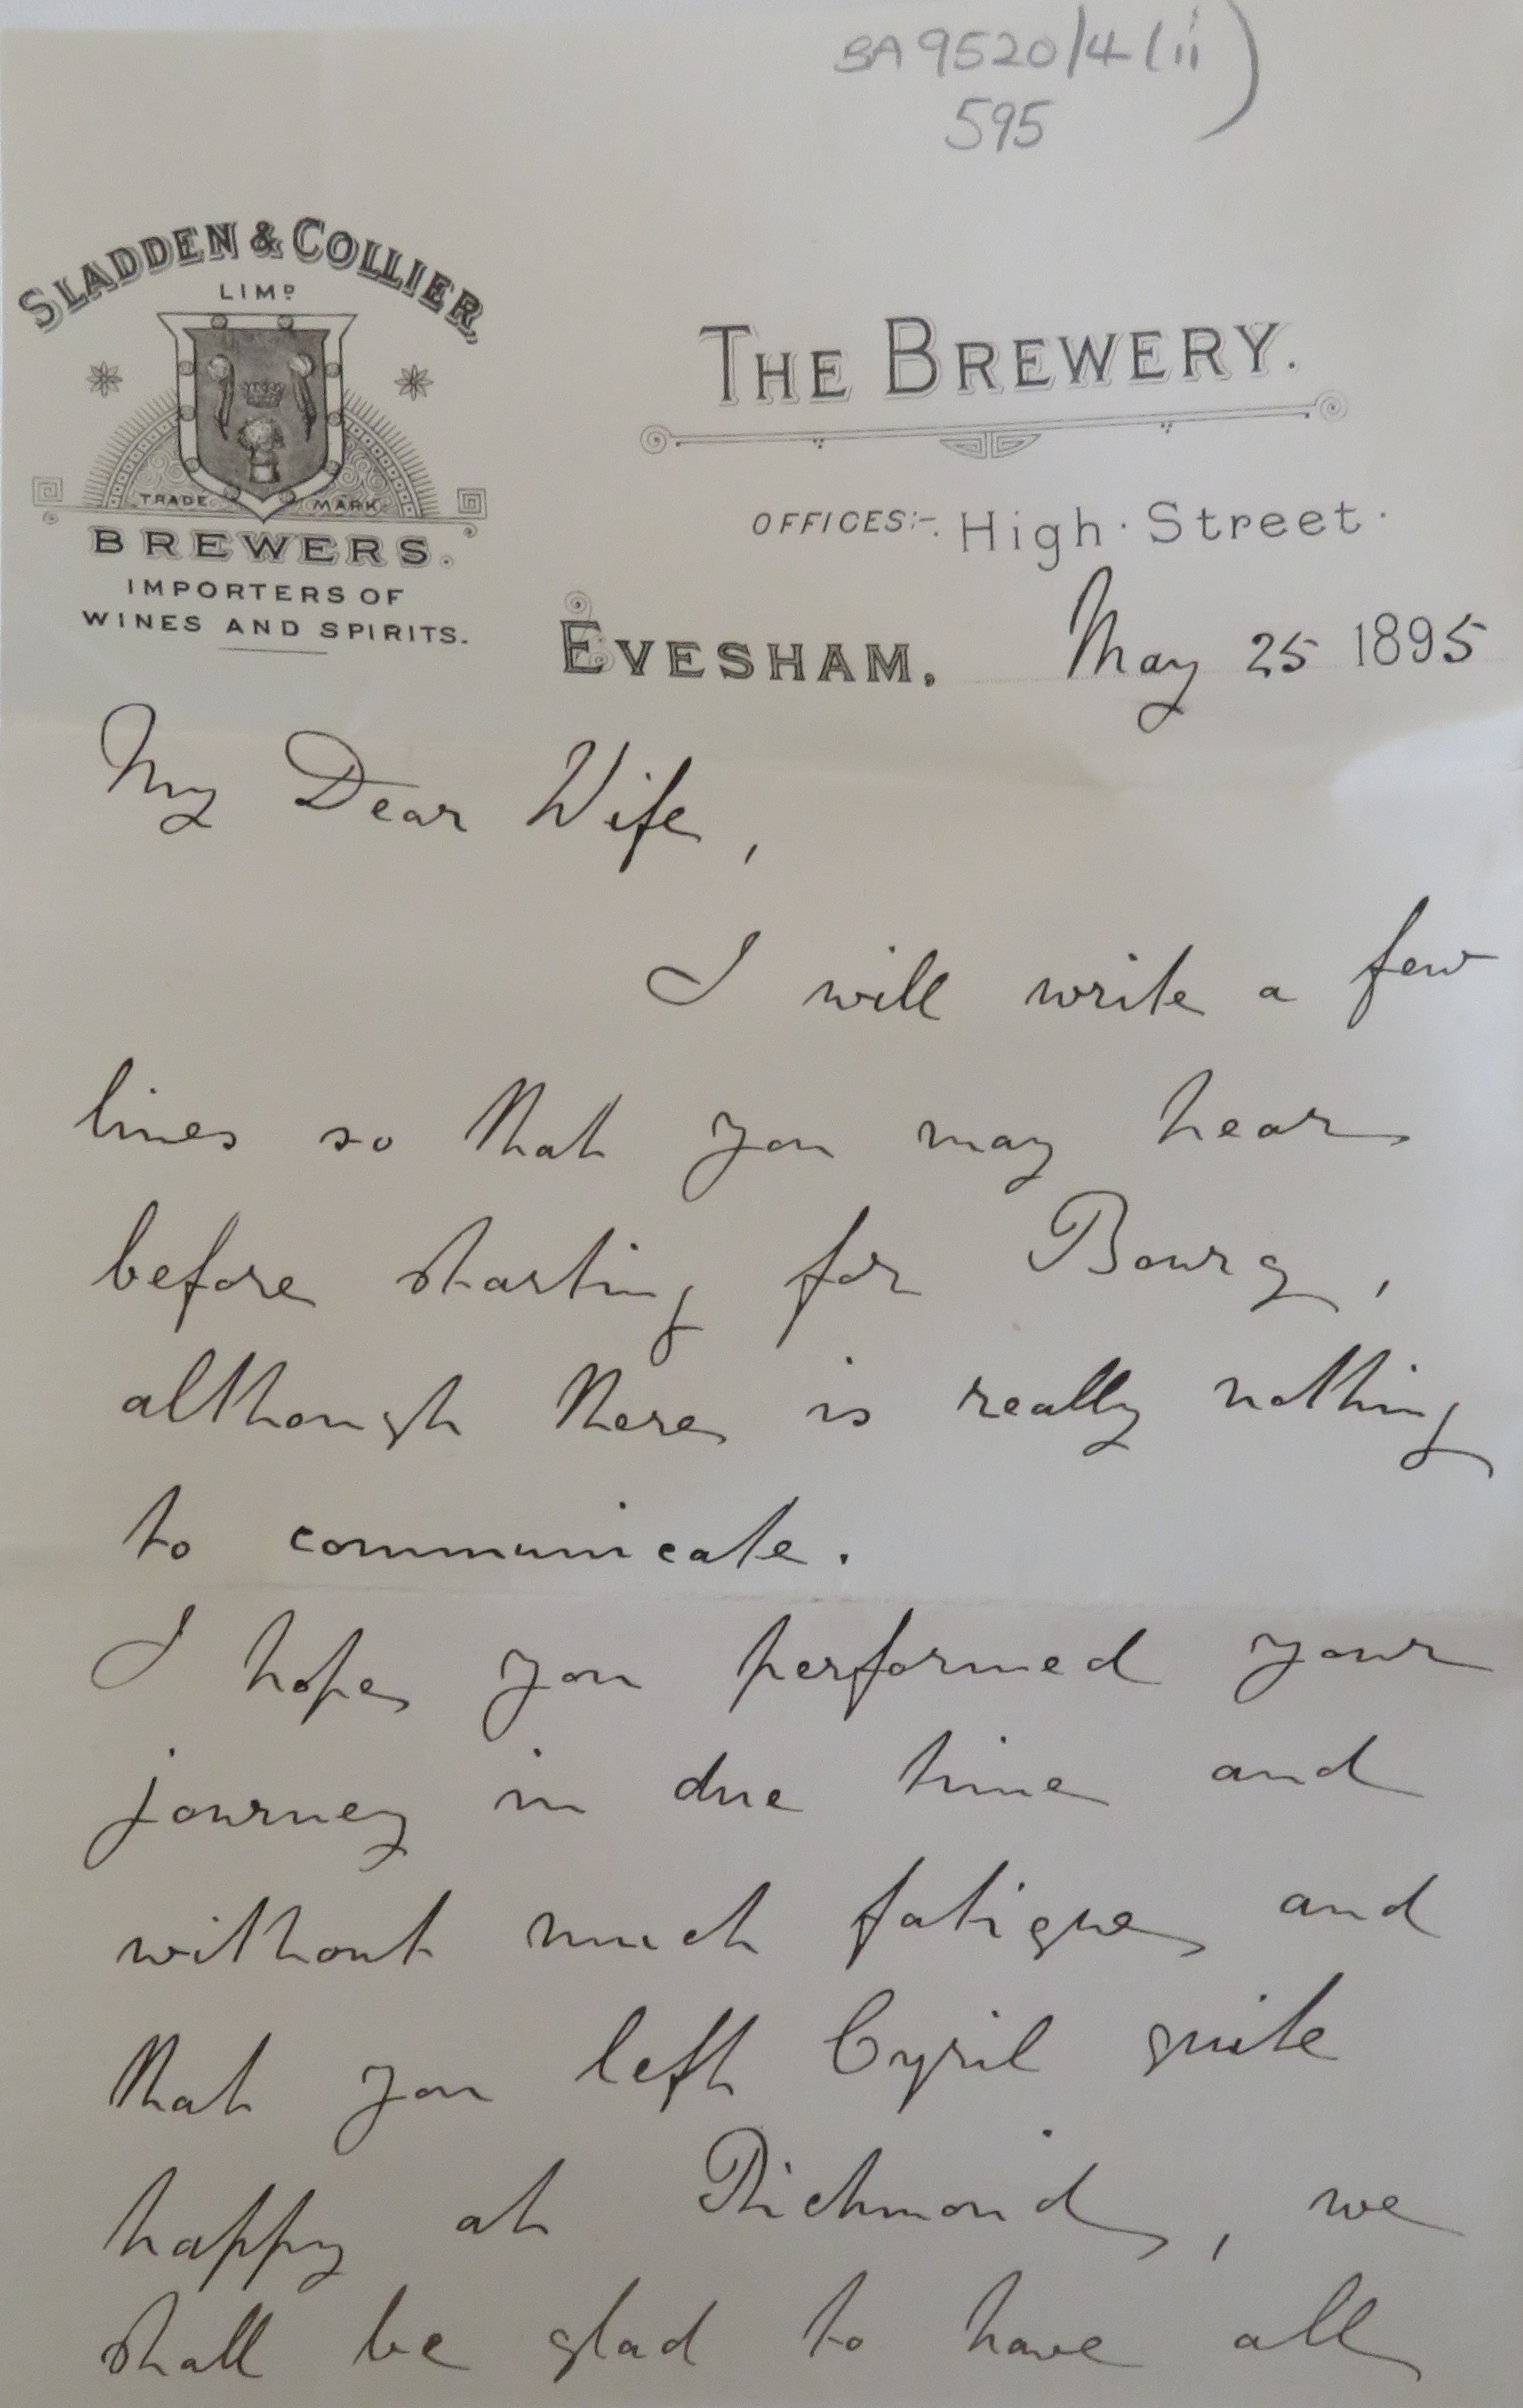 BA 9520/4 (ii)
595
SLADDEN & COLLIER,
LIMD
TRADE MARK
BREWERS.
IMPORTERS OF
WINES AND SPIRITS.
THE BREWERY.
OFFICES:- High Street.
EVESHAM. May 25 1895
My Dear Wife,
I will write a few
lines so that you may hear
before starting for Bourg,
although there is really nothing
to communicate.
I hope you performed your
journey in due time and
without much fatigue and
that you left Cyril quite
happy at Richmond, we
shall be glad to have all